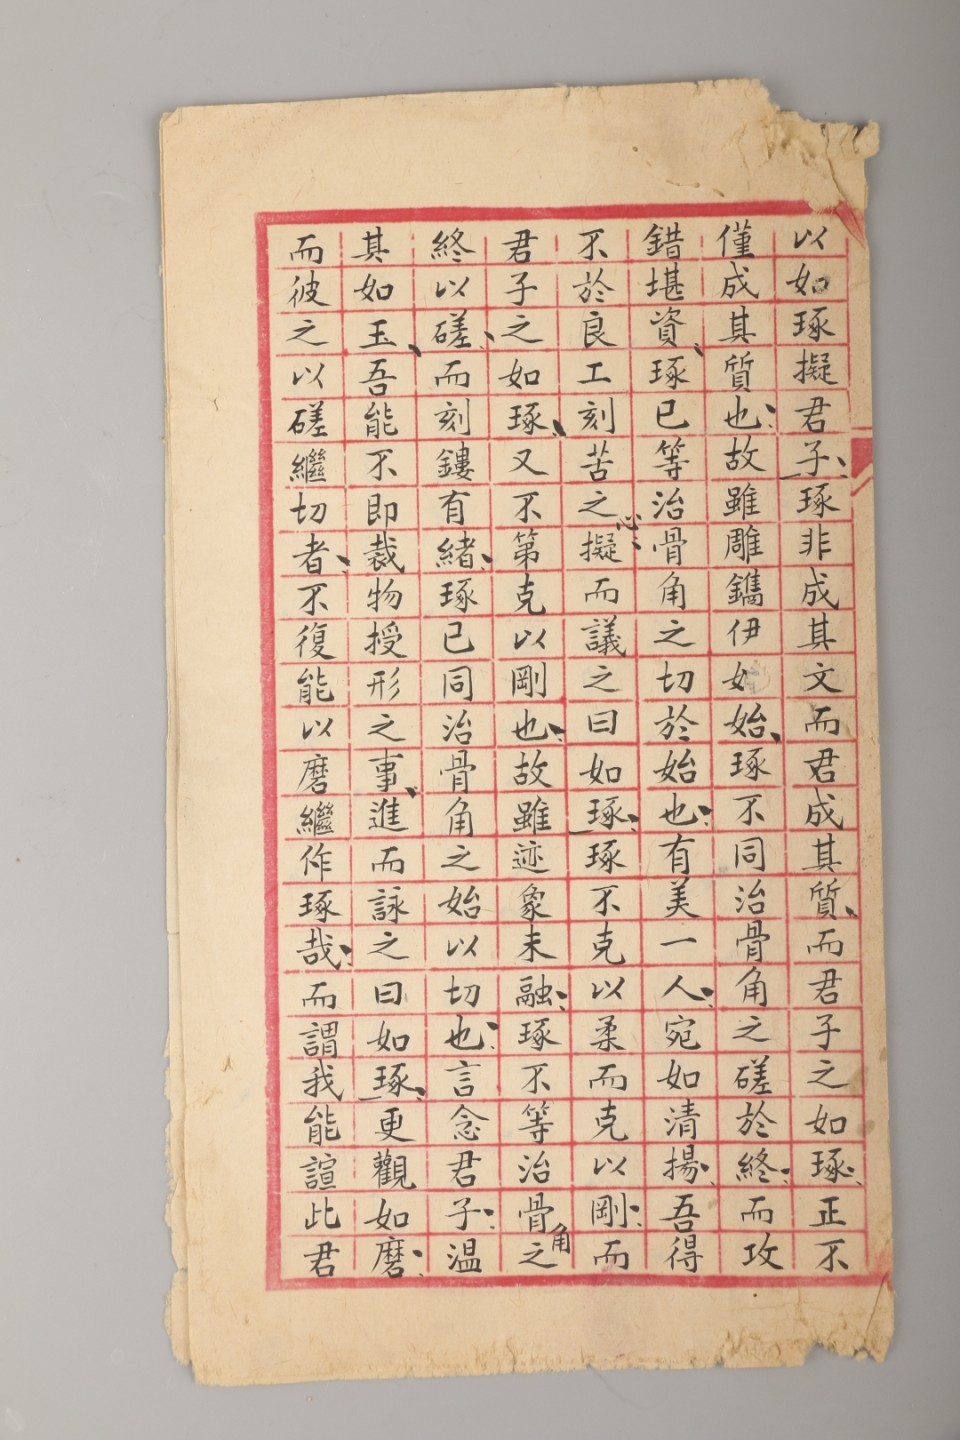 以如琢擬君子琢非成其文而君成其質而君子之如琢正不
僅成其質也故雖雕鐫伊始琢不同治骨角之磋於終而攻
錯堪資琢已等治骨角之切於始也有美一人宛如清揚吾得
不於良工刻苦之心擬而議之曰如琢琢不克以柔而克以剛而
君子之如琢又不第克以剛也故雖迹象未融琢不等治骨角之
終以磋而刻鏤有緒琢已同治骨角之始以切也言念君子溫
其如玉吾能不即裁物授形之事進而詠之曰如琢更觀如磨
而彼之以磋繼切者不復能以磨繼作琢哉而謂我能諠此君